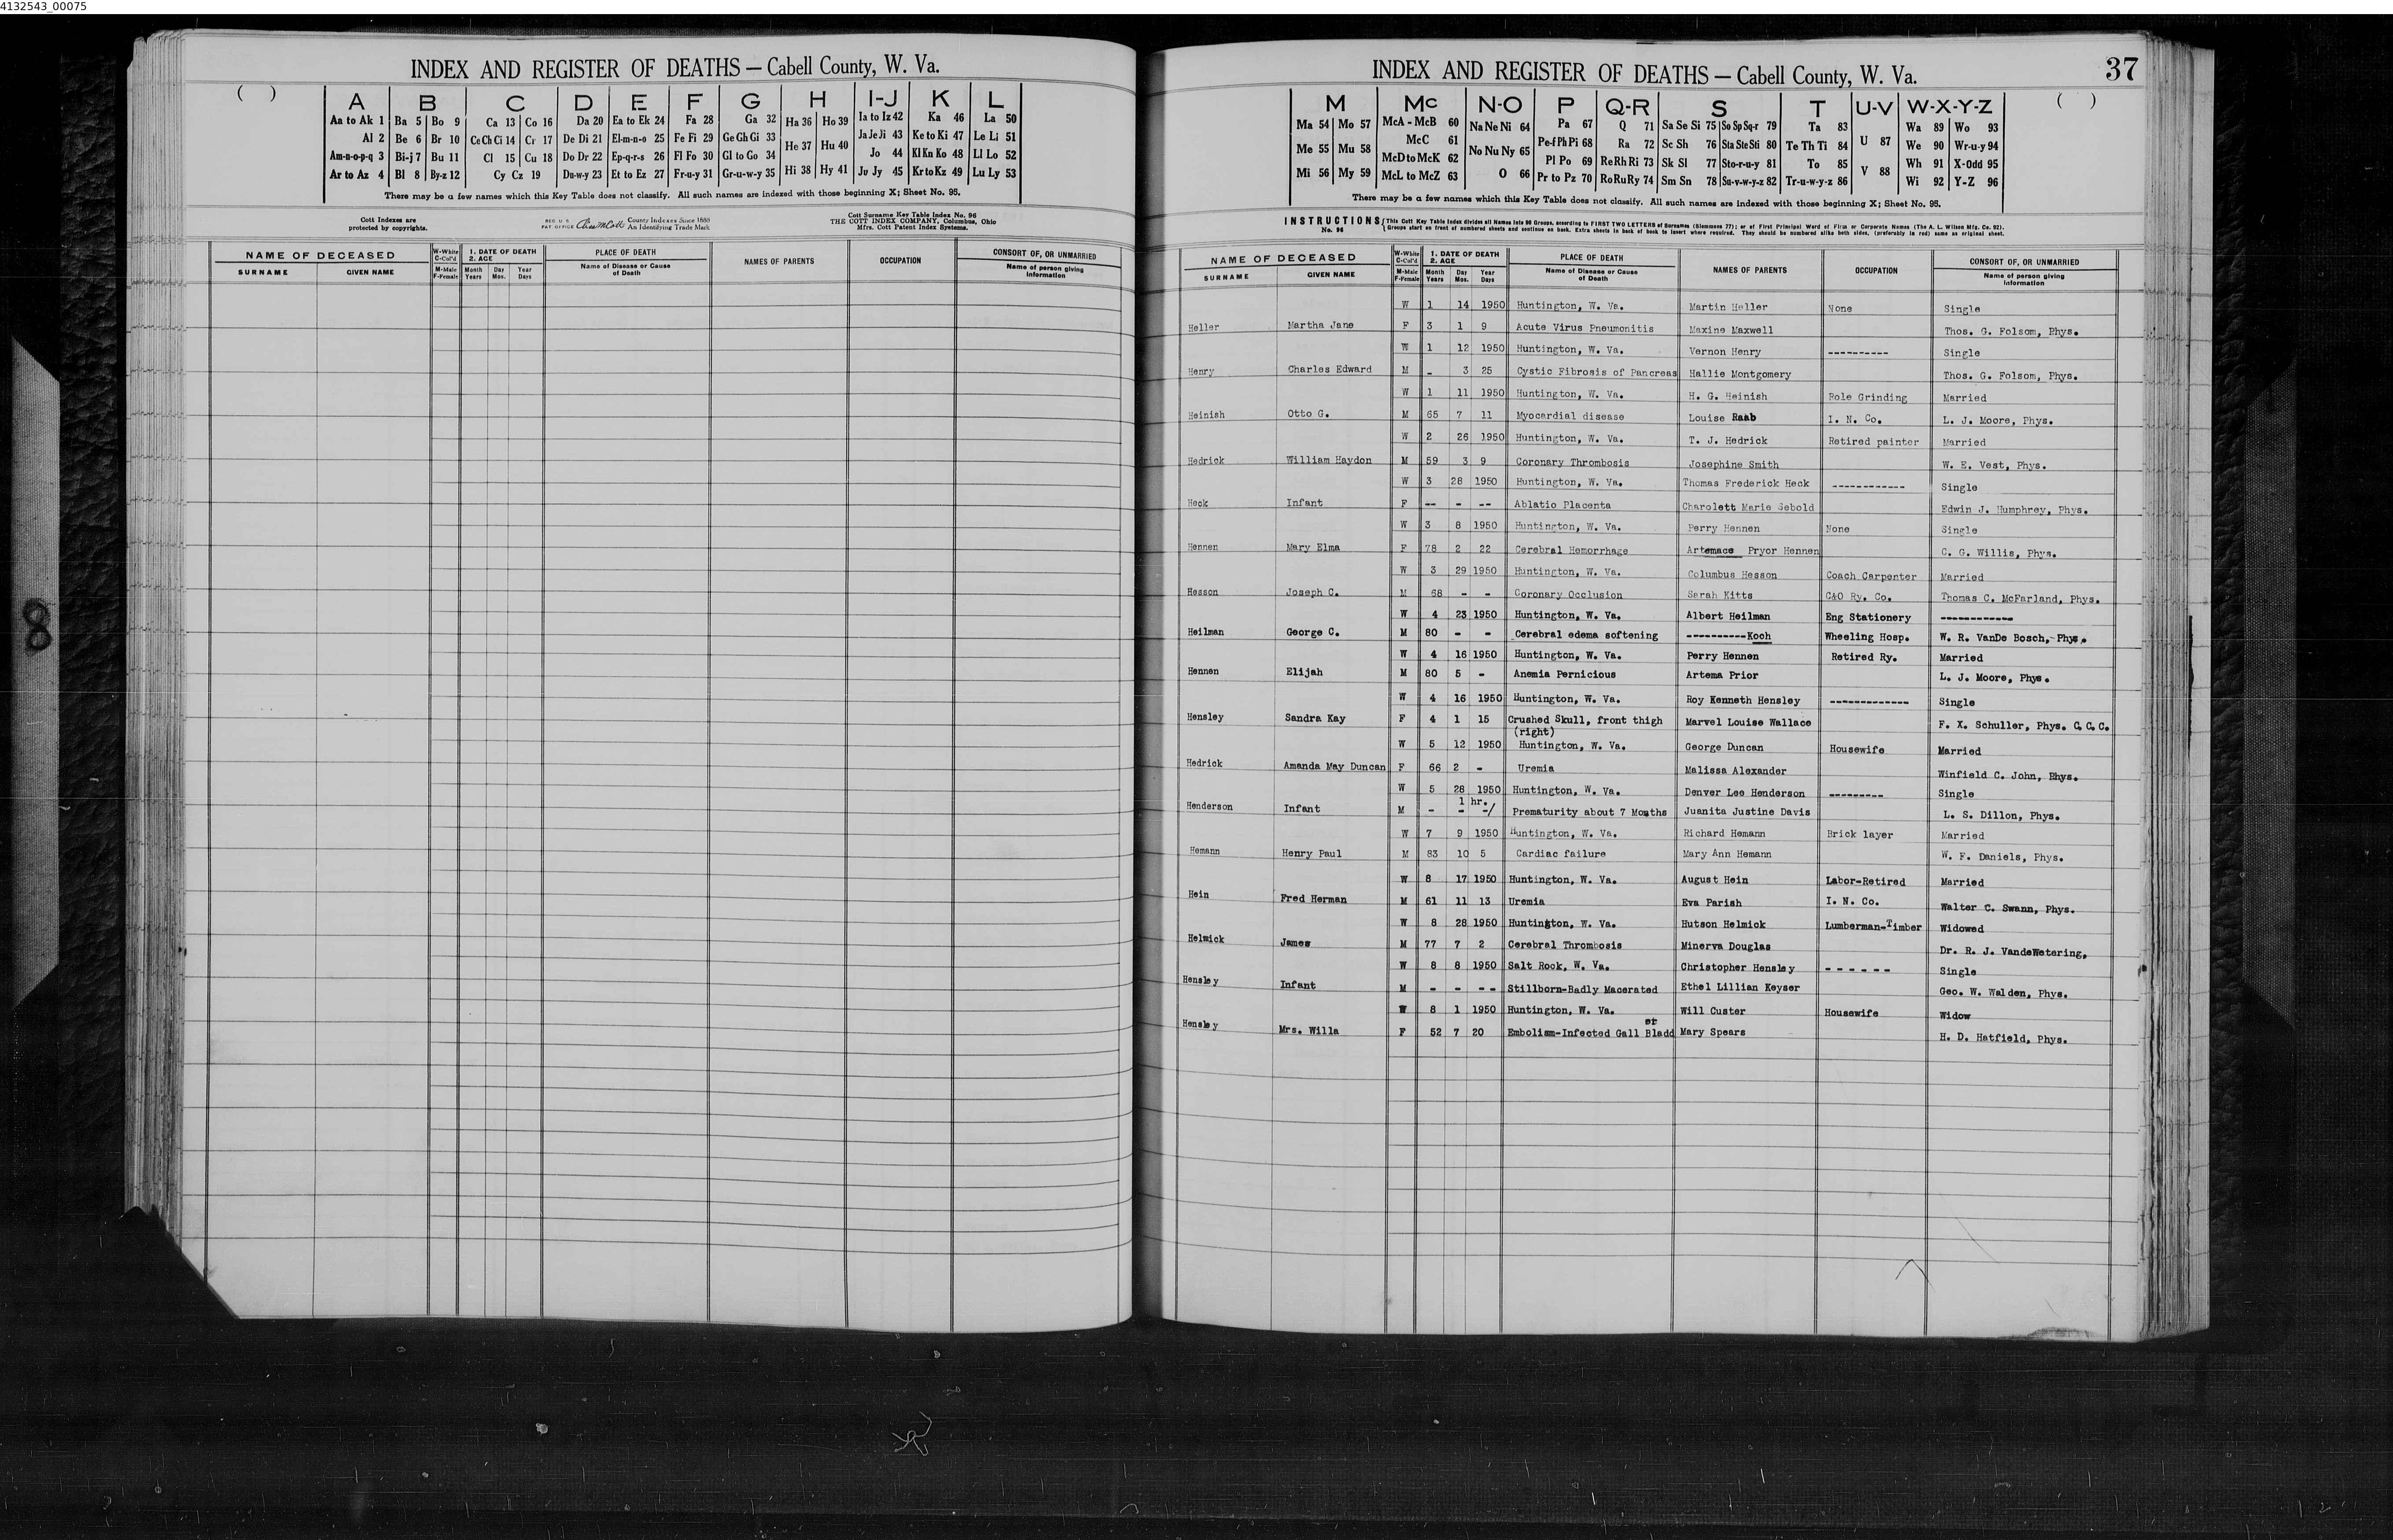 4132543_00075
INDEX AND REGISTER OF DEATHS — Cabell County, W. Va.
( )
A B C D E F G H I-J K L
Aa to Ak 1 Ba 5 Bo 9 Ca 13 Co 16 Da 20 Ea to Ek 24 Fa 28 Ga 32 Ha 36 Ho 39 Ia to Iz 42 Ka 46 La 50
Al 2 Be 6 Br 10 Ce Ch Ci 14 Cr 17 De Di 21 El-m-n-o 25 Fe Fi 29 Ge Gh Gi 33 He 37 Hu 40 Ja Je Ji 43 Ke to Ki 47 Le Li 51
Am-n-o-p-q 3 Bi-j 7 Bu 11 Cl 15 Cu 18 Do Dr 22 Ep-q-r-s 26 Fl Fo 30 Gl to Go 34 Jo 44 Kl Kn Ko 48 Ll Lo 52
Ar to Az 4 Bl 8 By-z 12 Cy Cz 19 Du-w-y 23 Et to Ez 27 Fr-u-y 31 Gr-u-w-y 35 Hi 38 Hy 41 Ju Jy 45 Kr to Kz 49 Lu Ly 53
There may be a few names which this Key Table does not classify. All such names are indexed with those beginning X; Sheet No. 95.
Cott Indexes are protected by copyrights.
REG. U.S. PAT. OFFICE County Indexes Since 1888 An Identifying Trade Mark
Cott Surname Key Table Index No. 96
THE COTT INDEX COMPANY, Columbus, Ohio
Mfrs. Cott Patent Index Systems.
NAME OF DECEASED W-White C-Col'd 1. DATE OF DEATH 2. AGE PLACE OF DEATH NAMES OF PARENTS OCCUPATION CONSORT OF, OR UNMARRIED
SURNAME GIVEN NAME M-Male F-Female Month Years Day Mos. Year Days Name of Disease or Cause of Death Name of person giving information
INDEX AND REGISTER OF DEATHS — Cabell County, W. Va.
37
( )
M Mc N-O P Q-R S T U-V W-X-Y-Z
Ma 54 Mo 57 McA - McB 60 Na Ne Ni 64 Pa 67 Q 71 Sa Se Si 75 So Sp Sq-r 79 Ta 83 U 87 Wa 89 Wo 93
Me 55 Mu 58 McC 61 Pe-f Ph Pi 68 Ra 72 Sc Sh 76 Sta Ste Sti 80 Te Th Ti 84 We 90 Wr-u-y 94
McD to McK 62 No Nu Ny 65 Pl Po 69 Re Rh Ri 73 Sk Sl 77 Sto-r-u-y 81 To 85 V 88 Wh 91 X-Odd 95
Mi 56 My 59 McL to McZ 63 O 66 Pr to Pz 70 Ro Ru Ry 74 Sm Sn 78 Su-v-w-y-z 82 Tr-u-w-y-z 86 Wi 92 Y-Z 96
There may be a few names which this Key Table does not classify. All such names are indexed with those beginning X; Sheet No. 95.
INSTRUCTIONS No. 96 This Cott Key Table Index divides all Names into 96 Groups, according to FIRST TWO LETTERS of Surnames (Slemmons 77); or of First Principal Word of Firm or Corporate Names (The A. L. Wilson Mfg. Co. 92).
Groups start on front of numbered sheets and continue on back. Extra sheets in back of book to insert where required. They should be numbered alike both sides, (preferably in red) same as original sheet.
NAME OF DECEASED W-White C-Col'd 1. DATE OF DEATH 2. AGE PLACE OF DEATH NAMES OF PARENTS OCCUPATION CONSORT OF, OR UNMARRIED
SURNAME GIVEN NAME M-Male F-Female Month Years Day Mos. Year Days Name of Disease or Cause of Death Name of person giving information
W 1 14 1950 Huntington, W. Va. Martin Heller None Single
Heller Martha Jane F 3 1 9 Acute Virus Pneumonitis Maxine Maxwell Thos. G. Folsom, Phys.
W 1 12 1950 Huntington, W. Va. Vernon Henry ---------- Single
Henry Charles Edward M - 3 25 Cystic Fibrosis of Pancreas Hallie Montgomery Thos. G. Folsom, Phys.
W 1 11 1950 Huntington, W. Va. H. G. Heinish Pole Grinding Married
Heinish Otto G. M 65 7 11 Myocardial disease Louise Raab I. N. Co. L. J. Moore, Phys.
W 2 26 1950 Huntington, W. Va. T. J. Hedrick Retired painter Married
Hedrick William Haydon M 59 3 9 Coronary Thrombosis Josephine Smith W. E. Vest, Phys.
W 3 28 1950 Huntington, W. Va. Thomas Frederick Heck ------------ Single
Heck Infant F -- - -- Ablatio Placenta Charolett Marie Sebold Edwin J. Humphrey, Phys.
W 3 8 1950 Huntington, W. Va. Perry Hennen None Single
Hennen Mary Elma F 78 2 22 Cerebral Hemorrhage Artemace Pryor Hennen C. G. Willis, Phys.
W 3 29 1950 Huntington, W. Va. Columbus Hesson Coach Carpenter Married
Hesson Joseph C. M 68 - - Coronary Occlusion Sarah Kitts C&O Ry. Co. Thomas C. McFarland, Phys.
W 4 23 1950 Huntington, W. Va. Albert Heilman Eng Stationery ------------
Heilman George C. M 80 - - Cerebral edema softening ----------Koch Wheeling Hosp. W. R. VanDe Bosch, Phys.
W 4 16 1950 Huntington, W. Va. Perry Hennen Retired Ry. Married
Hennen Elijah M 80 5 - Anemia Pernicious Artema Prior L. J. Moore, Phys.
W 4 16 1950 Huntington, W. Va. Roy Kenneth Hensley ------------- Single
Hensley Sandra Kay F 4 1 15 Crushed Skull, front thigh Marvel Louise Wallace F. X. Schuller, Phys. C.C.C.
(right)
W 5 12 1950 Huntington, W. Va. George Duncan Housewife Married
Hedrick Amanda May Duncan F 66 2 - Uremia Malissa Alexander Winfield C. John, Phys.
W 5 28 1950 Huntington, W. Va. Denver Lee Henderson --------- Single
1 hr.
Henderson Infant M - - -/ Prematurity about 7 Months Juanita Justine Davis L. S. Dillon, Phys.
W 7 9 1950 Huntington, W. Va. Richard Hemann Brick layer Married
Hemann Henry Paul M 83 10 5 Cardiac failure Mary Ann Hemann W. F. Daniels, Phys.
W 8 17 1950 Huntington, W. Va. August Hein Labor-Retired Married
Hein Fred Herman M 61 11 13 Uremia Eva Parish I. N. Co. Walter C. Swann, Phys.
W 8 28 1950 Huntington, W. Va. Hutson Helmick Lumberman-Timber Widowed
Helmick James M 77 7 2 Cerebral Thrombosis Minerva Douglas Dr. R. J. VandeWetering,
W 8 8 1950 Salt Rock, W. Va. Christopher Hensley - - - - - - Single
Hensley Infant M - - - - Stillborn-Badly Macerated Ethel Lillian Keyser Geo. W. Walden, Phys.
W 8 1 1950 Huntington, W. Va. Will Custer Housewife Widow
er
Hensley Mrs. Willa F 52 7 20 Embolism-Infected Gall Bladd Mary Spears H. D. Hatfield, Phys.
8